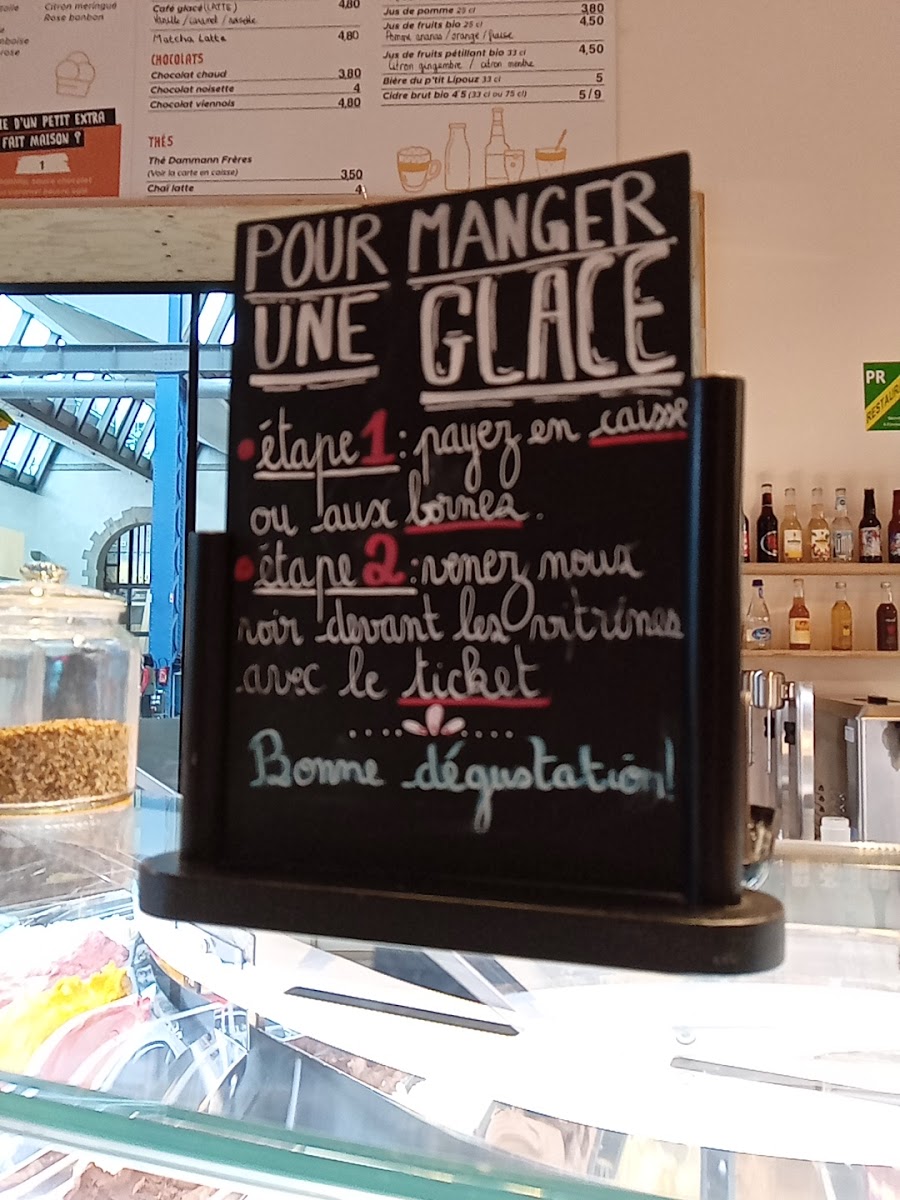 Citron meringué
Rose bonbon
Café glacé (LATTE) 4,80
Vanille / caramel / noisette
Matcha Latte 4,80
CHOCOLATS
Chocolat chaud 3,80
Chocolat noisette 4
Chocolat viennois 4,80
THÉS
Thé Dammann Frères
(Voir la carte en caisse) 3,50
Chaï latte 4
Jus de pomme 25 cl 3,80
Jus de fruits bio 25 cl 4,50
Pomme ananas / orange / fraise
Jus de fruits pétillant bio 33 cl 4,50
Citron gingembre / citron menthe
Bière du p'tit Lipouz 33 cl 5
Cidre brut bio 4°5 (33 cl ou 75 cl) 5 / 9
E D'UN PETIT EXTRA
FAIT MAISON ?
1
POUR MANGER
UNE GLACE
• étape 1 : payez en caisse
ou aux bornes.
• étape 2 : venez nous
voir devant les vitrines
avec le ticket
Bonne dégustation!
PR
RESTAUR